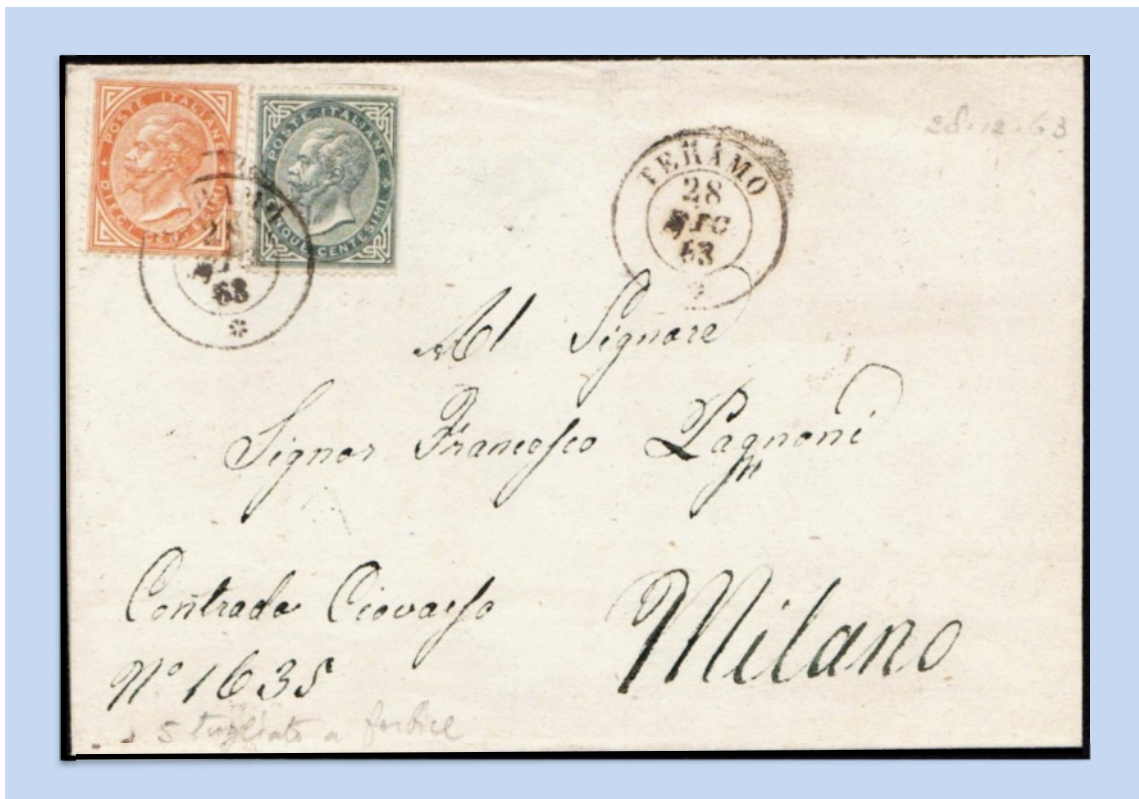 POSTE ITALIANE
DIECI CENTESIMI
POSTE ITALIANE
CENTESIMI
28
63
TERAMO
28
DIC
63
28.12.63
Al Signore
Signor Francesco Pagnoni
Contrada Ciovasso
Nº 1635
Milano
5 tagliato a forbice